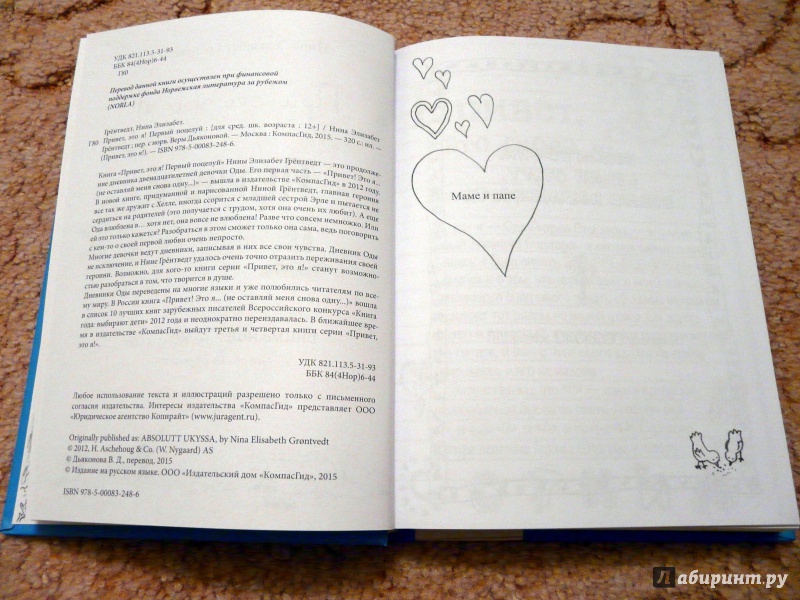 УДК 821.113.5-31-93
ББК 84(4Нор)6-44
Г80
Перевод данной книги осуществлен при финансовой
поддержке фонда Норвежская литература за рубежом
(NORLA)
Грёнтведт, Нина Элизабет.
Г80 Привет, это я! Первый поцелуй : [для сред. шк. возраста : 12+] / Нина Элизабет
Грёнтведт ; пер. с норв. Веры Дьяконовой. — Москва : КомпасГид, 2015. — 320 с.: ил. —
(Привет, это я!). — ISBN 978-5-00083-248-6.
Книга «Привет, это я! Первый поцелуй» Нины Элизабет Грёнтведт — это продолже-
ние дневника двенадцатилетней девочки Оды. Его первая часть — «Привет! Это я...
(не оставляй меня снова одну...)» — вышла в издательстве «КомпасГид» в 2012 году.
В новой книге, придуманной и нарисованной Ниной Грёнтведт, главная героиня
все так же дружит с Хелле, иногда ссорится с младшей сестрой Эрле и пытается не
сердиться на родителей (это получается с трудом, хотя она очень их любит). А еще
Ода влюблена в... хотя нет, она вовсе не влюблена! Разве что совсем немножко. Или
ей это только кажется? Разобраться в этом сможет только она сама, ведь поговорить
с кем-то о своей первой любви очень непросто.
Многие девочки ведут дневники, записывая в них все свои чувства. Дневник Оды
не исключение, и Нине Грёнтведт удалось очень точно отразить переживания своей
героини. Возможно, для кого-то книги серии «Привет, это я!» станут возможно-
стью разобраться в том, что творится в душе.
Дневники Оды переведены на многие языки и уже полюбились читателям по все-
му миру. В России книга «Привет! Это я... (не оставляй меня снова одну...)» вошла
в список 10 лучших книг зарубежных писателей Всероссийского конкурса «Книга
года: выбирают дети» 2012 года и неоднократно переиздавалась. В ближайшее вре-
мя в издательстве «КомпасГид» выйдут третья и четвертая книги серии «Привет,
это я!».
УДК 821.113.5-31-93
ББК 84(4Нор)6-44
Любое использование текста и иллюстраций разрешено только с письменного
согласия издательства. Интересы издательства «КомпасГид» представляет ООО
«Юридическое агентство Копирайт» (www.juragent.ru).
Originally published as: ABSOLUTT UKYSSA, by Nina Elisabeth Grøntvedt
© 2012, H. Aschehoug & Co. (W. Nygaard) AS
© Дьяконова В. Д., перевод, 2015
© Издание на русском языке. ООО «Издательский дом «КомпасГид», 2015
ISBN 978-5-00083-248-6
Маме и папе
Лабиринт.ру